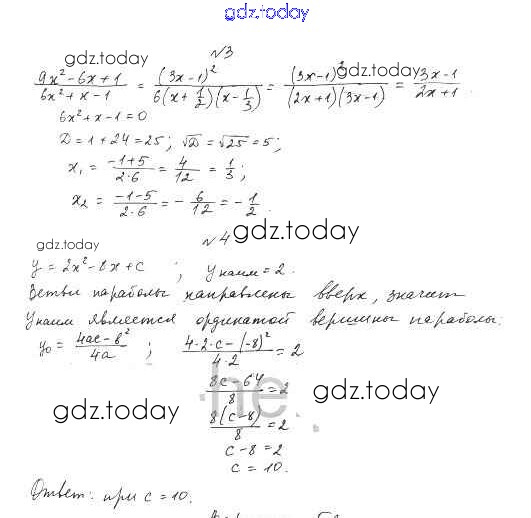 gdz.today
№3
gdz.today gdz.today
(9x² - 6x + 1)/(6x² + x - 1) = (3x - 1)²/(6(x + 1/2)(x - 1/3)) = (3x - 1)²/((2x + 1)(3x - 1)) = (3x - 1)/(2x + 1).
6x² + x - 1 = 0
D = 1 + 24 = 25; √D = √25 = 5;
x₁ = (-1 + 5)/(2·6) = 4/12 = 1/3;
x₂ = (-1 - 5)/(2·6) = -6/12 = -1/2.
gdz.today №4 gdz.today
y = 2x² - 8x + c; y наим = 2.
Ветви параболы направлены вверх, значит
y наим является ординатой вершины параболы.
y₀ = (4ac - b²)/4a; (4·2·c - (-8)²)/(4·2) = 2
(8c - 64)/8 = 2
gdz.today he gdz.today
8(c - 8)/8 = 2
c - 8 = 2
c = 10.
Ответ: при c = 10.